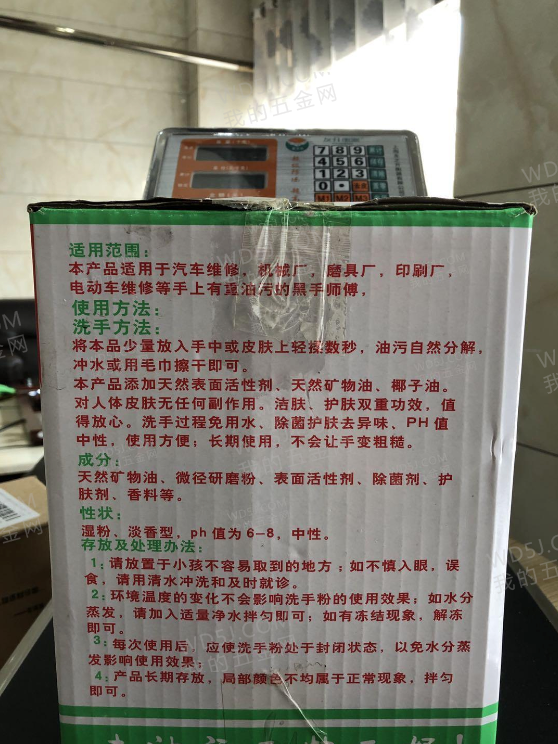 7 8 9
4 5 6
1 2 3
0
M1 M2 M3
适用范围：
本产品适用于汽车维修，机械厂，磨具厂，印刷厂，
电动车维修等手上有重油污的黑手师傅，
使用方法：
洗手方法：
将本品少量放入手中或皮肤上轻揉数秒，油污自然分解，
冲水或用毛巾擦干即可。
本产品添加天然表面活性剂、天然矿物油、椰子油。
对人体皮肤无任何副作用。洁肤、护肤双重功效，值
得放心。洗手过程免用水、除菌护肤去异味、PH值
中性，使用方便；长期使用，不会让手变粗糙。
成分：
天然矿物油、微径研磨粉、表面活性剂、除菌剂、护
肤剂、香料等。
性状：
湿粉、淡香型，ph值为6-8，中性。
存放及处理办法：
1：请放置于小孩不容易取到的地方；如不慎入眼，误
食，请用清水冲洗和及时就诊。
2：环境温度的变化不会影响洗手粉的使用效果；如水分
蒸发，请加入适量净水拌匀即可；如有冻结现象，解冻
即可。
3：每次使用后，应使洗手粉处于封闭状态，以免水分蒸
发影响使用效果；
4：产品长期存放，局部颜色不均属于正常现象，拌匀
即可。
WDSJ.COM
我的五金网